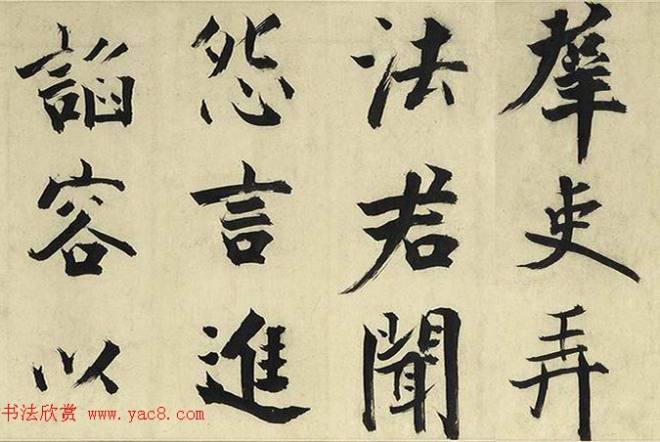 羣吏弄
法君聞
怨言進
諂容以
书法欣赏 www.yac8.com